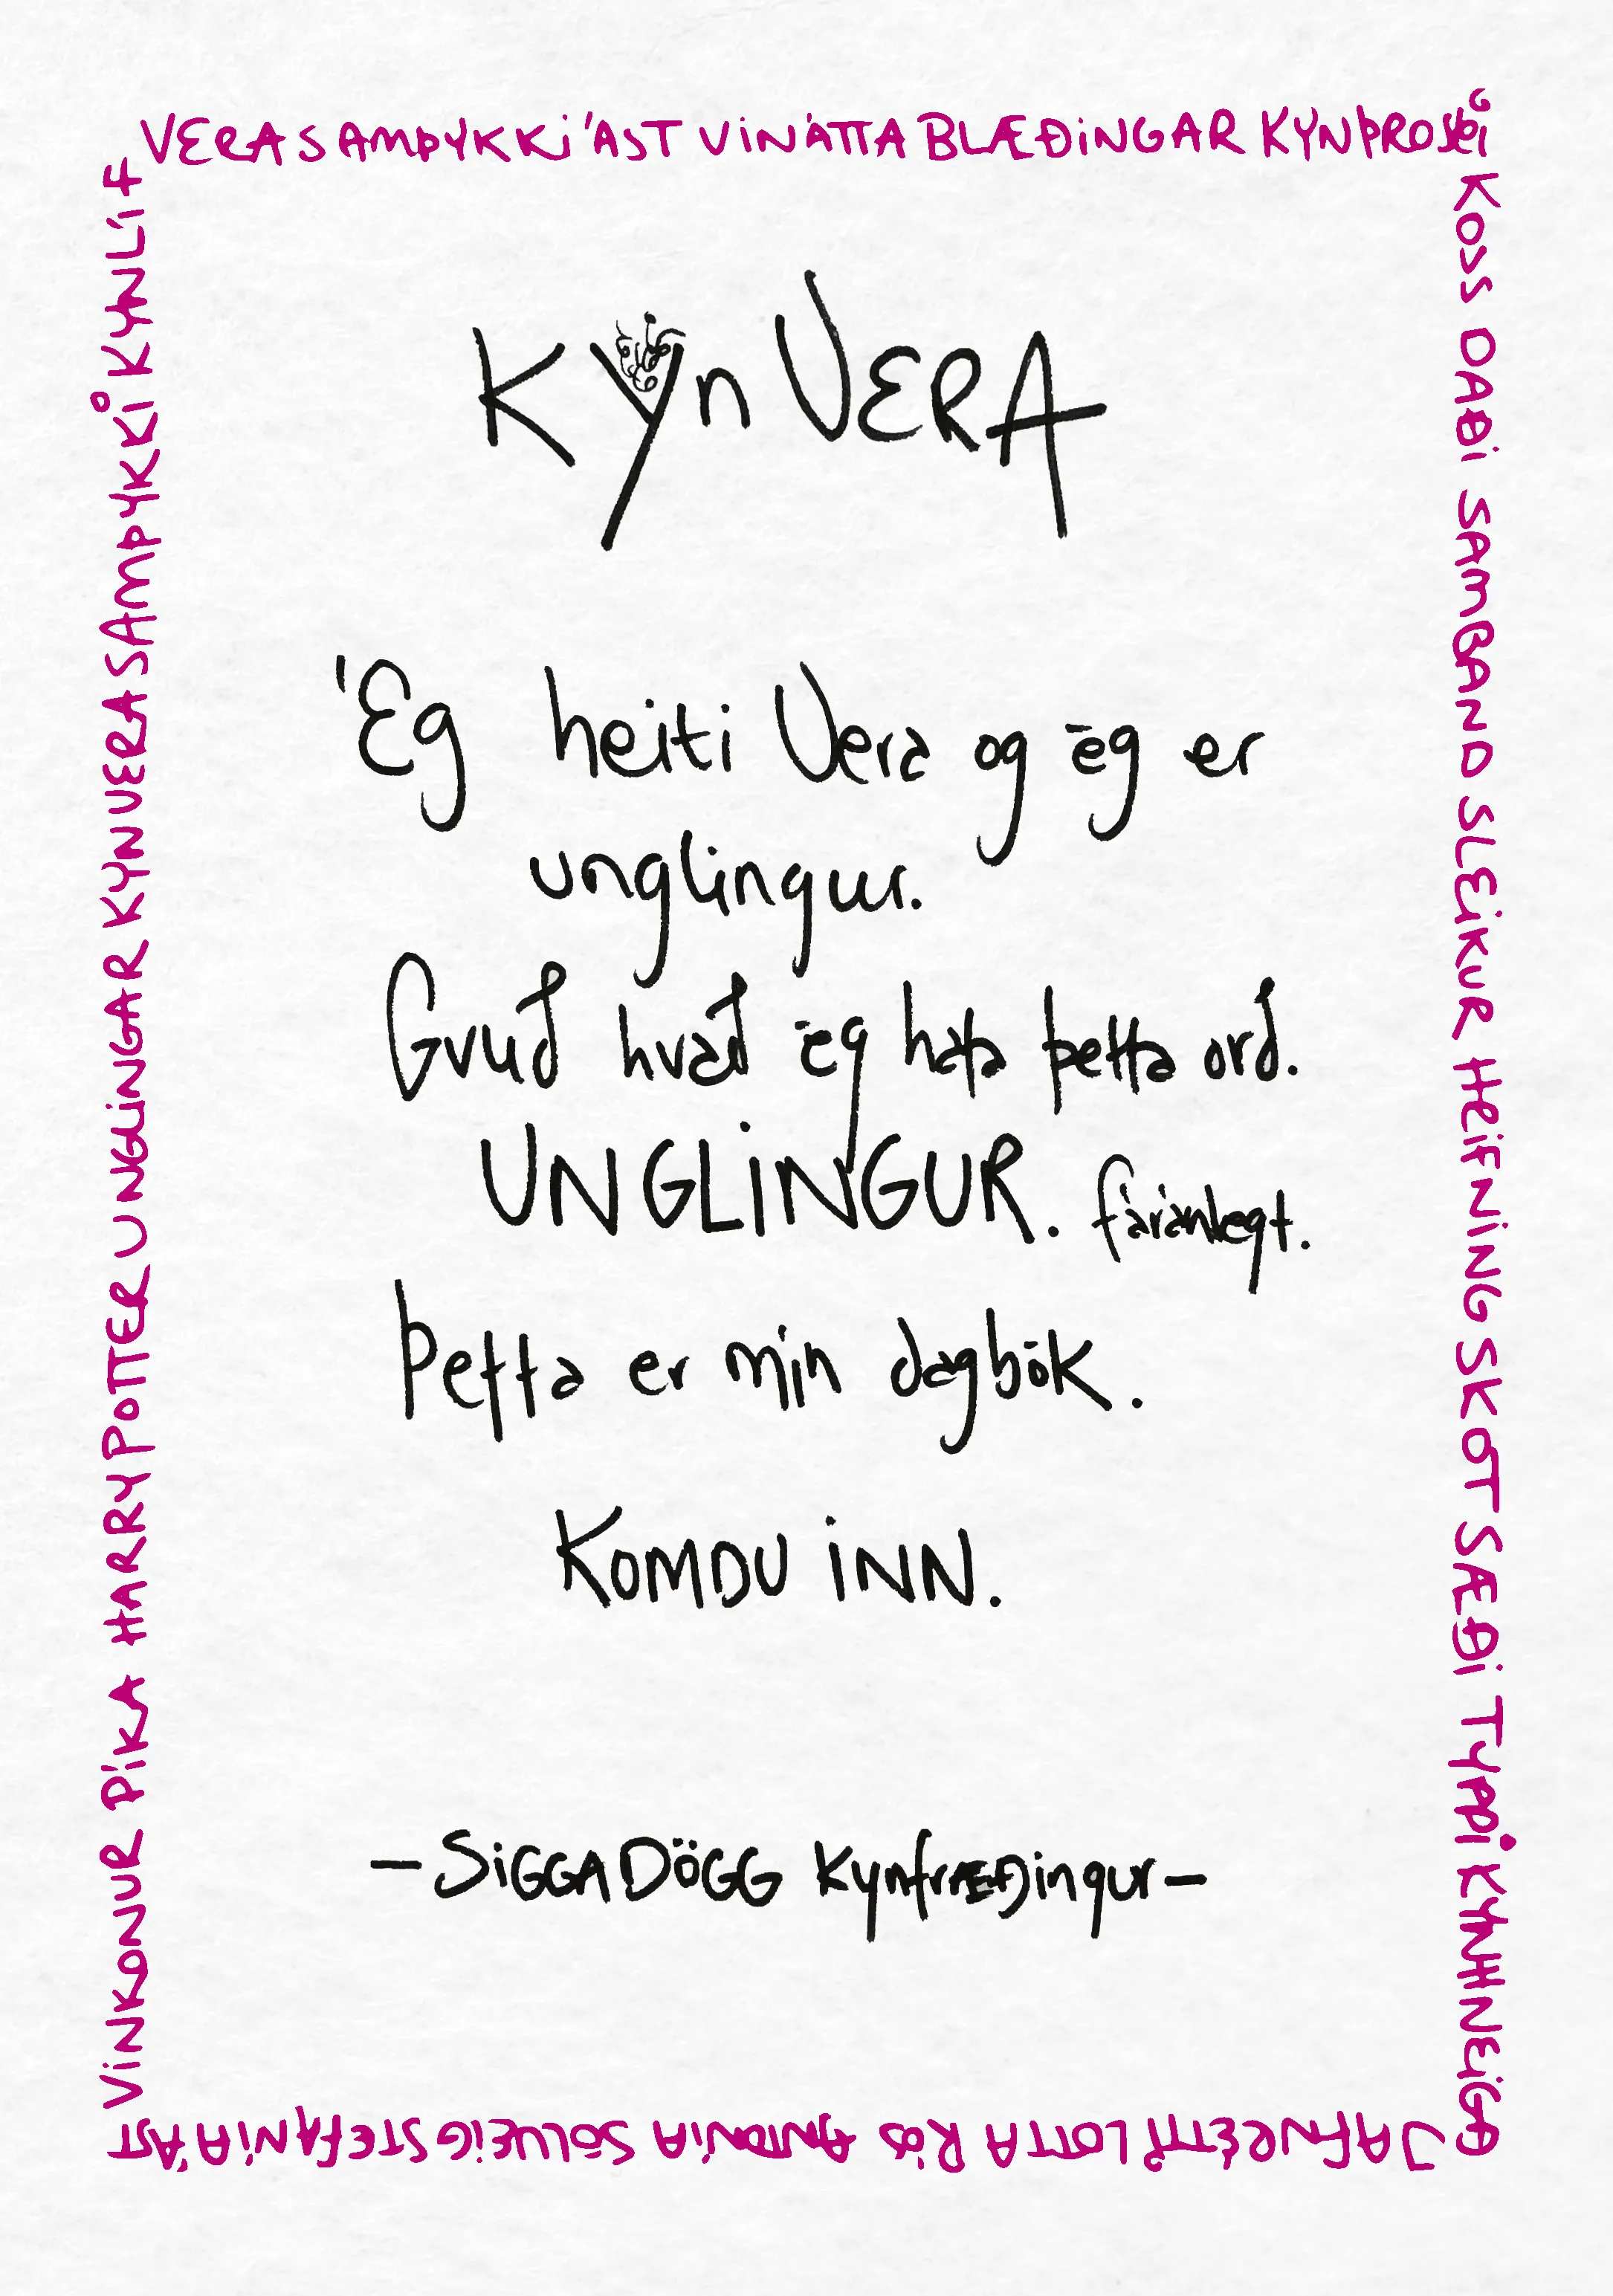 VERA SAMÞYKKI ÁST VINÁTTA BLÆÐINGAR KYNÞROSKI
KOSS DAÐI SAMBAND SLEIKUR HEIFNING SKOT SÆÐI TYPPI KYNHNEIGÐ
JAFNRÉTTI LOTTA RÓS ANTONÍA SÓLVEIG STEFANÍA ÁST
VINKONUR PÍKA HARRY POTTER UNGLINGAR KYNVERA SAMÞYKKI KYNLÍF
KYNVERA
Ég heiti Vera og ég er
unglingur.
Gvuð hvað ég hata þetta orð.
UNGLINGUR. fáránlegt.
Þetta er mín dagbók.
KOMDU INN.
– SIGGA DÖGG kynfræðingur –